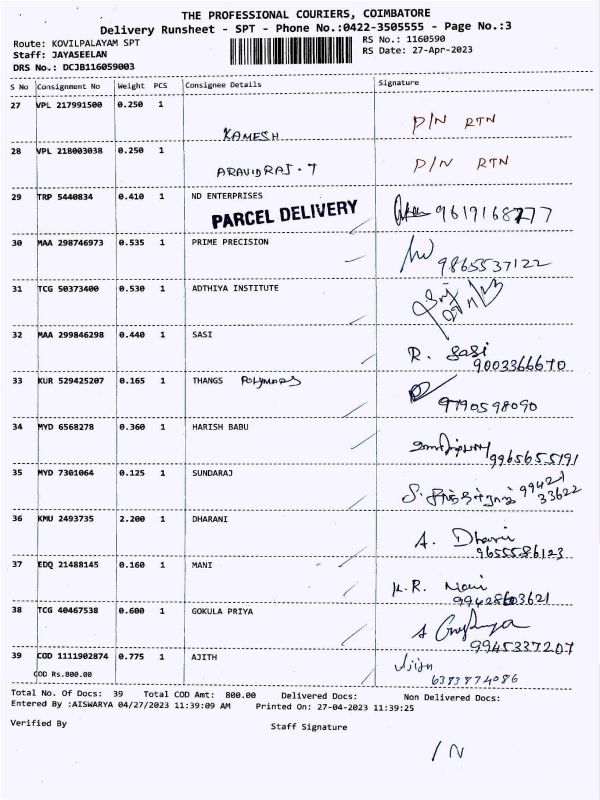 THE PROFESSIONAL COURIERS, COIMBATORE
Delivery Runsheet - SPT - Phone No.:0422-3505555 - Page No.:3
Route: KOVILPALAYAM SPT RS No.: 1160590
Staff: JAYASEELAN RS Date: 27-Apr-2023
DRS No.: DCJB116059003
S No Consignment No Weight PCS Consignee Details Signature
27 VPL 217991500 0.250 1
KAMESH P/N RTN
28 VPL 218003038 0.250 1
ARAVIDRAJ.T P/N RTN
29 TRP 5440834 0.410 1 ND ENTERPRISES
PARCEL DELIVERY 9619168777
30 MAA 298746973 0.535 1 PRIME PRECISION
9865537122
31 TCG 50373400 0.530 1 ADTHIYA INSTITUTE
32 MAA 299846298 0.440 1 SASI
R. Sasi
9003366670
33 KUR 529425207 0.165 1 THANGS
9790598090
34 MYD 6568278 0.360 1 HARISH BABU
9965655191
35 MYD 7301064 0.125 1 SUNDARAJ
99421
33622
36 KMU 2493735 2.200 1 DHARANI
A. Dharani
9655586123
37 EDQ 21488145 0.160 1 MANI
K.R. Mani
9942863621
38 TCG 40467538 0.600 1 GOKULA PRIYA
9945337207
39 COD 1111902874 0.775 1 AJITH
Ajith
COD Rs.800.00 6383774086
Total No. Of Docs: 39 Total COD Amt: 800.00 Delivered Docs: Non Delivered Docs:
Entered By :AISWARYA 04/27/2023 11:39:09 AM Printed On: 27-04-2023 11:39:25
Verified By Staff Signature